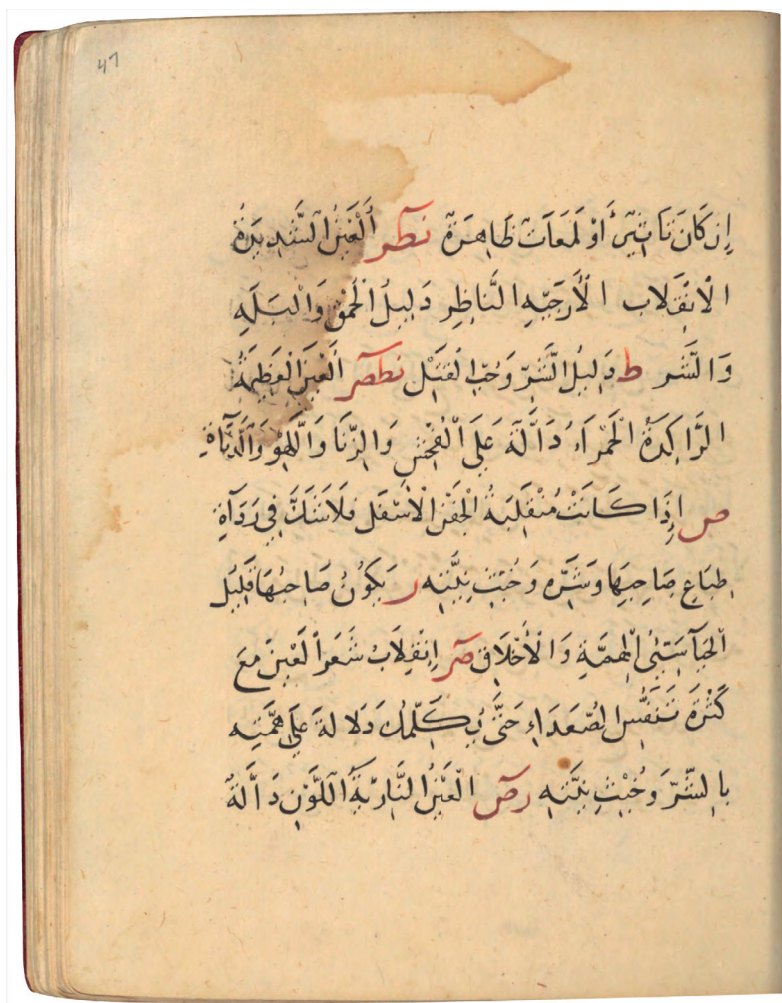 47
إِنْ كَانَ نَاتِئِينَ أَوْ لَمَعَاتٍ ظَاهِرَةً نطر اَلْعَيْنُ الشَّدِيدَةُ
الْاِنْقِلَابِ الْأَرَجِيَّهِ النَّاظِرِ دَلِيلُ الْحُمْقِ وَالْبَلَهِ
وَالشَّرِ ط دَلِيلُ الشَّرِّ وَحُبِّ الْقَتْلِ نطصر اَلْعَيْنُ الْعَظِيمَةُ
الرَّاكِدَةُ الْحَمْرَاءُ دَالَّةٌ عَلَى الْفُحْشِ وَالزِّنَا وَاللَّهْوِ وَالدَّنَاةِ
ص إِذَا كَانَتْ مُنْقَلِبَةُ الْجَفْنِ الْأَسْفَلِ فَلَا شَكَّ فِي رَدَآةِ
طِبَاعِ صَاحِبِهَا وَشَرِّهِ وَخُبْثِ نِيَّتِهِ ر يَكُونُ صَاحِبُهَا قَلِيلُ
الْحَيَآ سَيِّئُ الْهِمَّةِ وَالْأَخْلَاقِ صر اِنْقِلَابُ شَعَرِ الْعَيْنِ مَعَ
كَثْرَةِ تَنَفُّسِ الصُّعَدَاءِ حَتَّى يُكَلِّمُكَ دَلَالَةً عَلَى هِمَّتِهِ
بِالشَّرِّ وَخُبْثِ نِيَّتِهِ رص الْعَيْنُ النَّارِيَّةُ اللَّوْنِ دَالَّةٌ